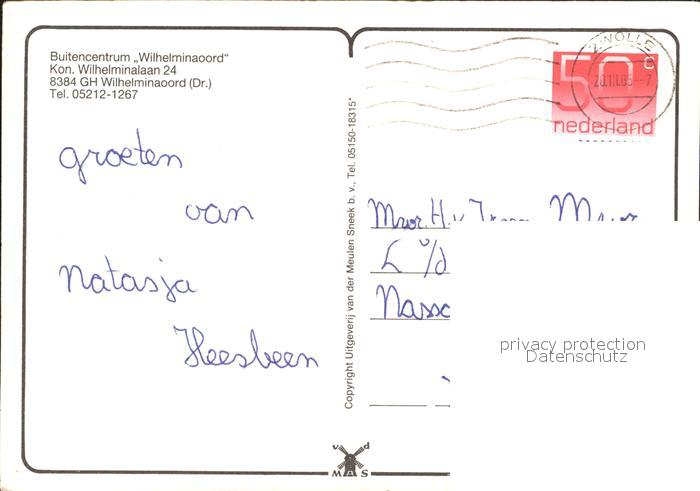 Buitencentrum „Wilhelminaoord"
Kon. Wilhelminalaan 24
8384 GH Wilhelminaoord (Dr.)
Tel. 05212-1267
groeten
van
Natasja
Heesbeen
Copyright Uitgeverij van der Meulen Sneek b. v., Tel. 05150-18315*
ZWOLLE
50 c
nederland
privacy protection
Datenschutz
v d
M S